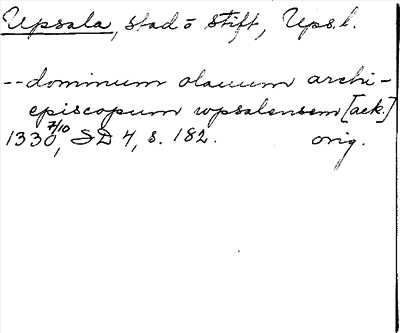 Upsala, stad o stift, Ups.l.
-- dominum olauum archi-
episcopum wpsalensem [ack.]
1330 7/10, SD 4, s. 182. orig.